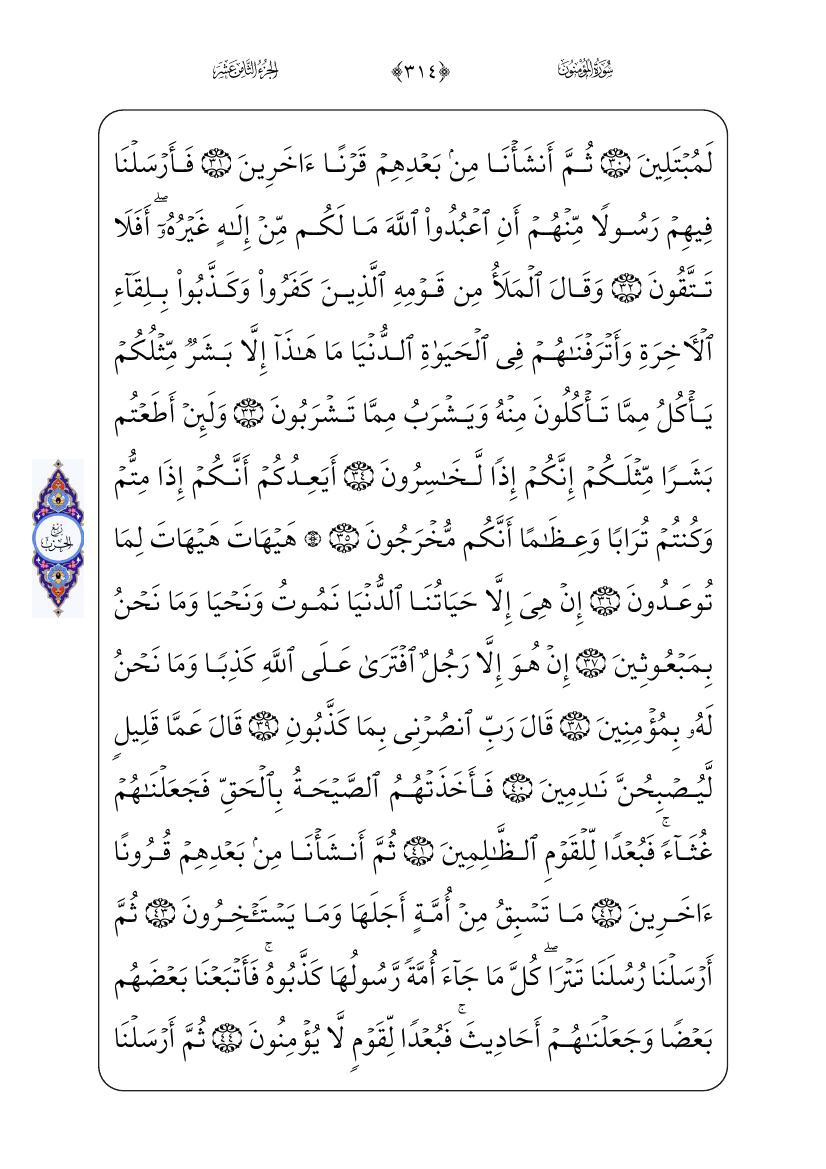 سُورَةُ المُؤۡمِنُونَ
﴿٣١٤﴾
الجُزۡءُ الثَّامِنَ عَشَرَ
لَمُبۡتَلِينَ ٣٠ ثُمَّ أَنشَأۡنَا مِنۢ بَعۡدِهِمۡ قَرۡنًا ءَاخَرِينَ ٣١ فَأَرۡسَلۡنَا
فِيهِمۡ رَسُولٗا مِّنۡهُمۡ أَنِ ٱعۡبُدُواْ ٱللَّهَ مَا لَكُم مِّنۡ إِلَٰهٍ غَيۡرُهُۥٓۖ أَفَلَا
تَتَّقُونَ ٣٢ وَقَالَ ٱلۡمَلَأُ مِن قَوۡمِهِ ٱلَّذِينَ كَفَرُواْ وَكَذَّبُواْ بِلِقَآءِ
ٱلۡأٓخِرَةِ وَأَتۡرَفۡنَٰهُمۡ فِي ٱلۡحَيَوٰةِ ٱلدُّنۡيَا مَا هَٰذَآ إِلَّا بَشَرٞ مِّثۡلُكُمۡ
يَأۡكُلُ مِمَّا تَأۡكُلُونَ مِنۡهُ وَيَشۡرَبُ مِمَّا تَشۡرَبُونَ ٣٣ وَلَئِنۡ أَطَعۡتُم
بَشَرٗا مِّثۡلَكُمۡ إِنَّكُمۡ إِذٗا لَّخَٰسِرُونَ ٣٤ أَيَعِدُكُمۡ أَنَّكُمۡ إِذَا مِتُّمۡ
وَكُنتُمۡ تُرَابٗا وَعِظَٰمًا أَنَّكُم مُّخۡرَجُونَ ٣٥ ۞ هَيۡهَاتَ هَيۡهَاتَ لِمَا
رُبۡعُ
الحِزۡبِ
تُوعَدُونَ ٣٦ إِنۡ هِيَ إِلَّا حَيَاتُنَا ٱلدُّنۡيَا نَمُوتُ وَنَحۡيَا وَمَا نَحۡنُ
بِمَبۡعُوثِينَ ٣٧ إِنۡ هُوَ إِلَّا رَجُلٌ ٱفۡتَرَىٰ عَلَى ٱللَّهِ كَذِبٗا وَمَا نَحۡنُ
لَهُۥ بِمُؤۡمِنِينَ ٣٨ قَالَ رَبِّ ٱنصُرۡنِي بِمَا كَذَّبُونِ ٣٩ قَالَ عَمَّا قَلِيلٖ
لَّيُصۡبِحُنَّ نَٰدِمِينَ ٤٠ فَأَخَذَتۡهُمُ ٱلصَّيۡحَةُ بِٱلۡحَقِّ فَجَعَلۡنَٰهُمۡ
غُثَآءٗۚ فَبُعۡدٗا لِّلۡقَوۡمِ ٱلظَّٰلِمِينَ ٤١ ثُمَّ أَنشَأۡنَا مِنۢ بَعۡدِهِمۡ قُرُونًا
ءَاخَرِينَ ٤٢ مَا تَسۡبِقُ مِنۡ أُمَّةٍ أَجَلَهَا وَمَا يَسۡتَـٔۡخِرُونَ ٤٣ ثُمَّ
أَرۡسَلۡنَا رُسُلَنَا تَتۡرَاۖ كُلَّ مَا جَآءَ أُمَّةٗ رَّسُولُهَا كَذَّبُوهُۚ فَأَتۡبَعۡنَا بَعۡضَهُم
بَعۡضٗا وَجَعَلۡنَٰهُمۡ أَحَادِيثَۚ فَبُعۡدٗا لِّقَوۡمٖ لَّا يُؤۡمِنُونَ ٤٤ ثُمَّ أَرۡسَلۡنَا